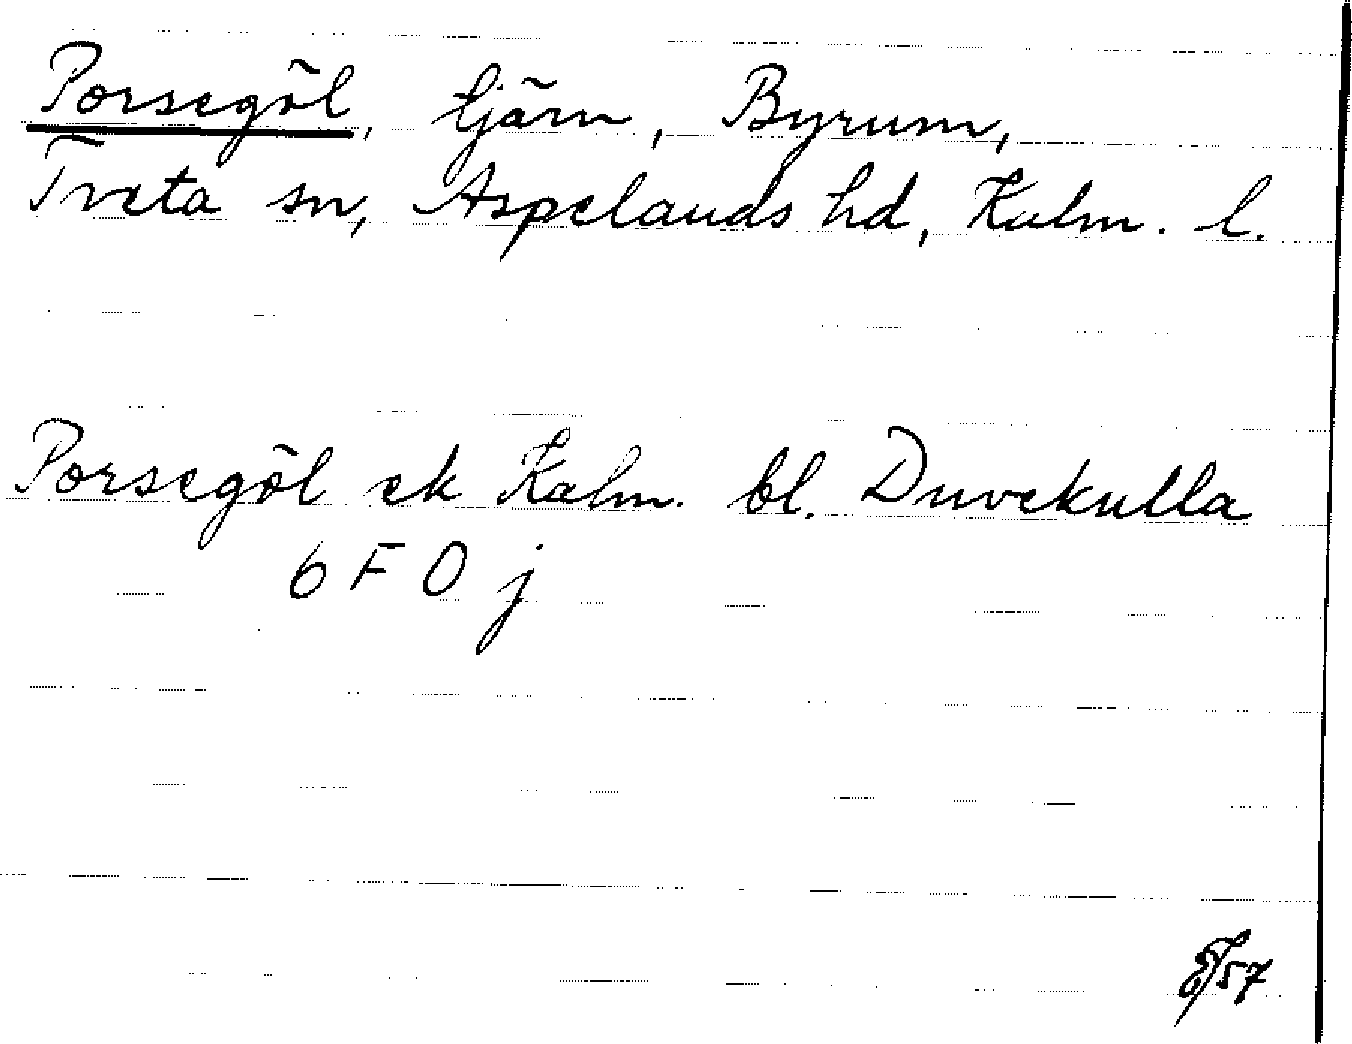 Porsegöl, tjärn, Byrum,
Tveta sn, Aspelands hd, Kalm. l.
Porsegöl ek Kalm. bl. Duvekulla
6 F 0 j
57